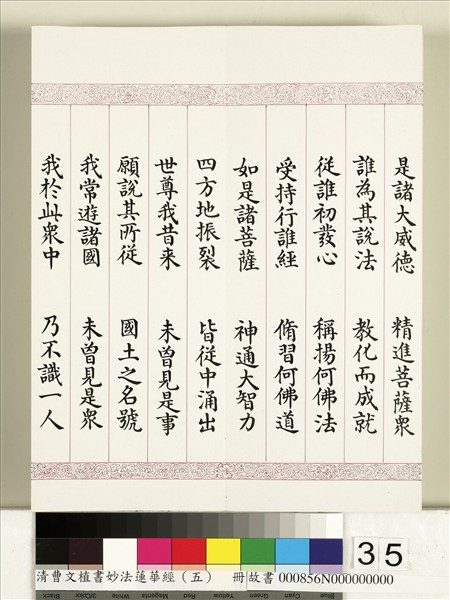 是諸大威德 精進菩薩衆
誰為其說法 教化而成就
從誰初發心 稱揚何佛法
受持行誰經 脩習何佛道
如是諸菩薩 神通大智力
四方地振裂 皆從中涌出
世尊我昔来 未曾見是事
願說其所從 國土之名號
我常遊諸國 未曾見是衆
我於此衆中 乃不識一人
35
清曹文植書妙法蓮華經（五） 冊故書 000856N000000000
Black 3/Color White Magenta Red Yellow Green Cyan Blue